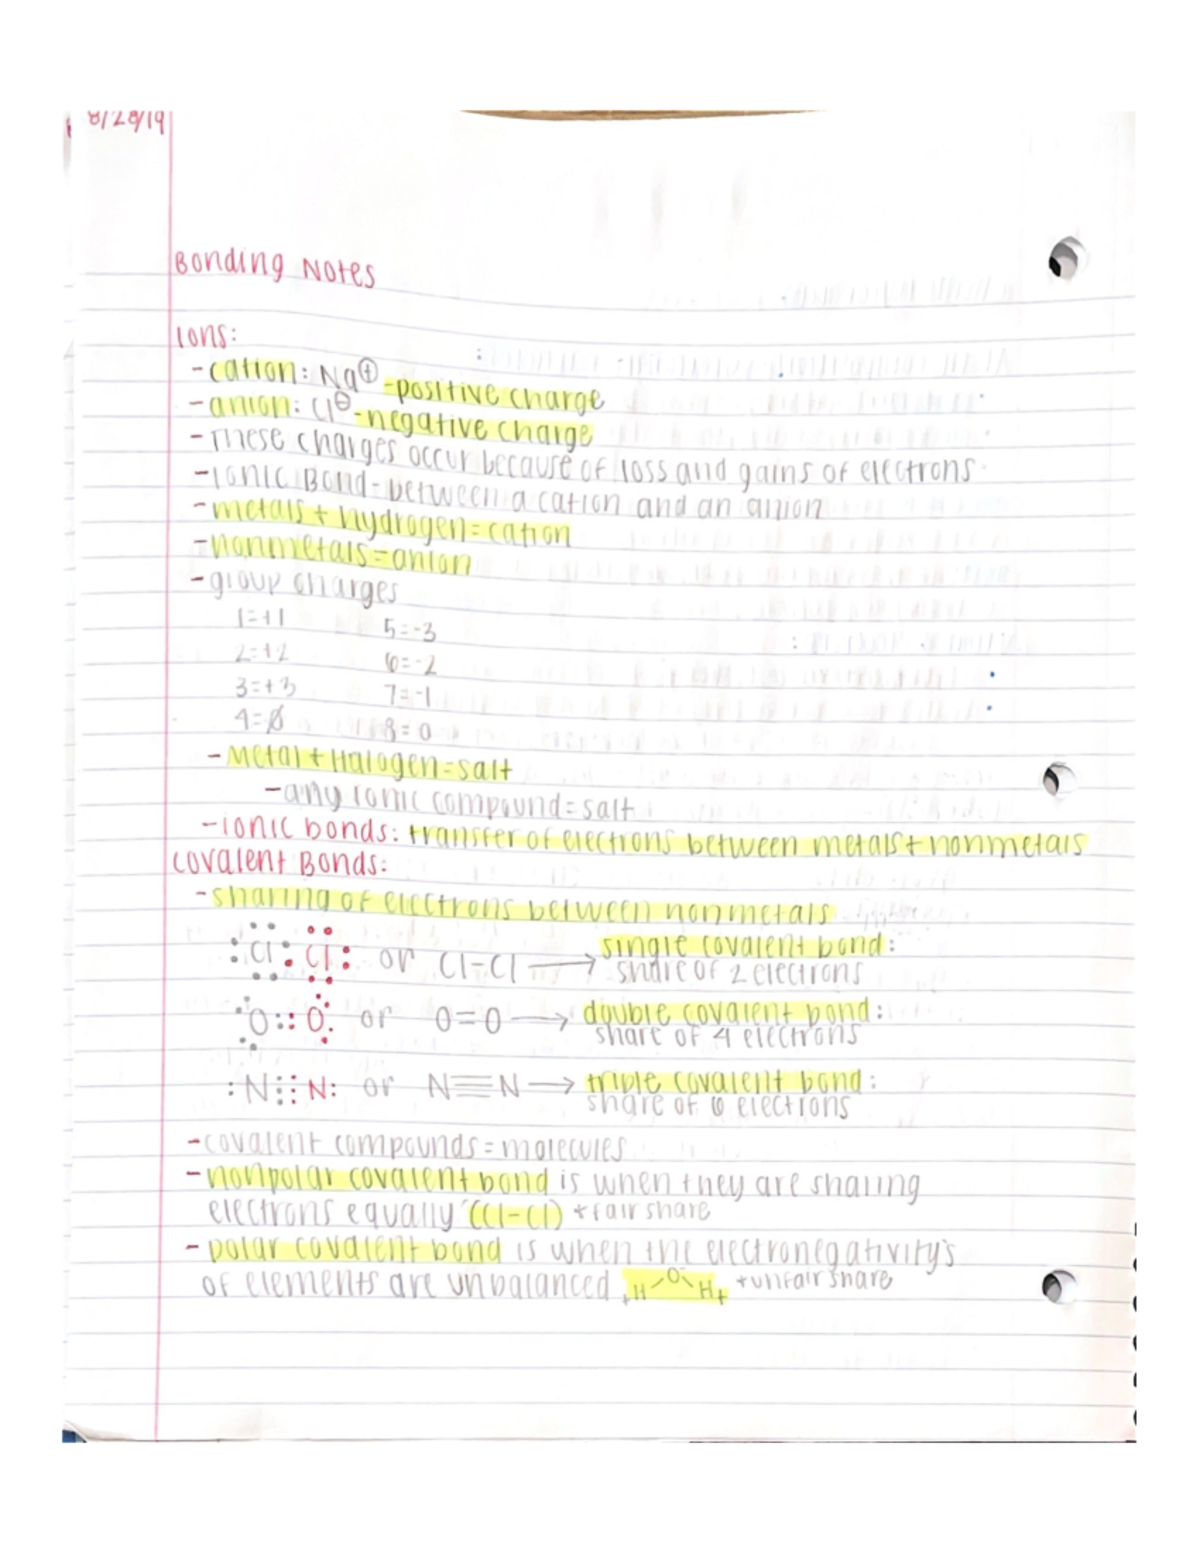 8/28/19
Bonding Notes
Ions:
-cation: Na⊕-positive charge
-anion: Cl⊖-negative charge
-These charges occur because of loss and gains of electrons
-Ionic Bond-between a cation and an anion
-metals + hydrogen=cation
-nonmetals=anion
-group charges
1=+1 5=-3
2=+2 6=-2
3=+3 7=-1
4=∅ 8=0
-Metal + Halogen=salt
-any ionic compound=salt
-ionic bonds: transfer of electrons between metals+nonmetals
Covalent Bonds:
-sharing of electrons between nonmetals
:Cl:Cl: or Cl-Cl → single covalent bond:
share of 2 electrons
:O::O: or O=O → double covalent bond:
share of 4 electrons
:N:::N: or N≡N → triple covalent bond:
share of 6 electrons
-covalent compounds=molecules
-nonpolar covalent bond is when they are sharing
electrons equally (Cl-Cl) *fair share
-polar covalent bond is when the electronegativity's
of elements are unbalanced +H-O-H+ *unfair share